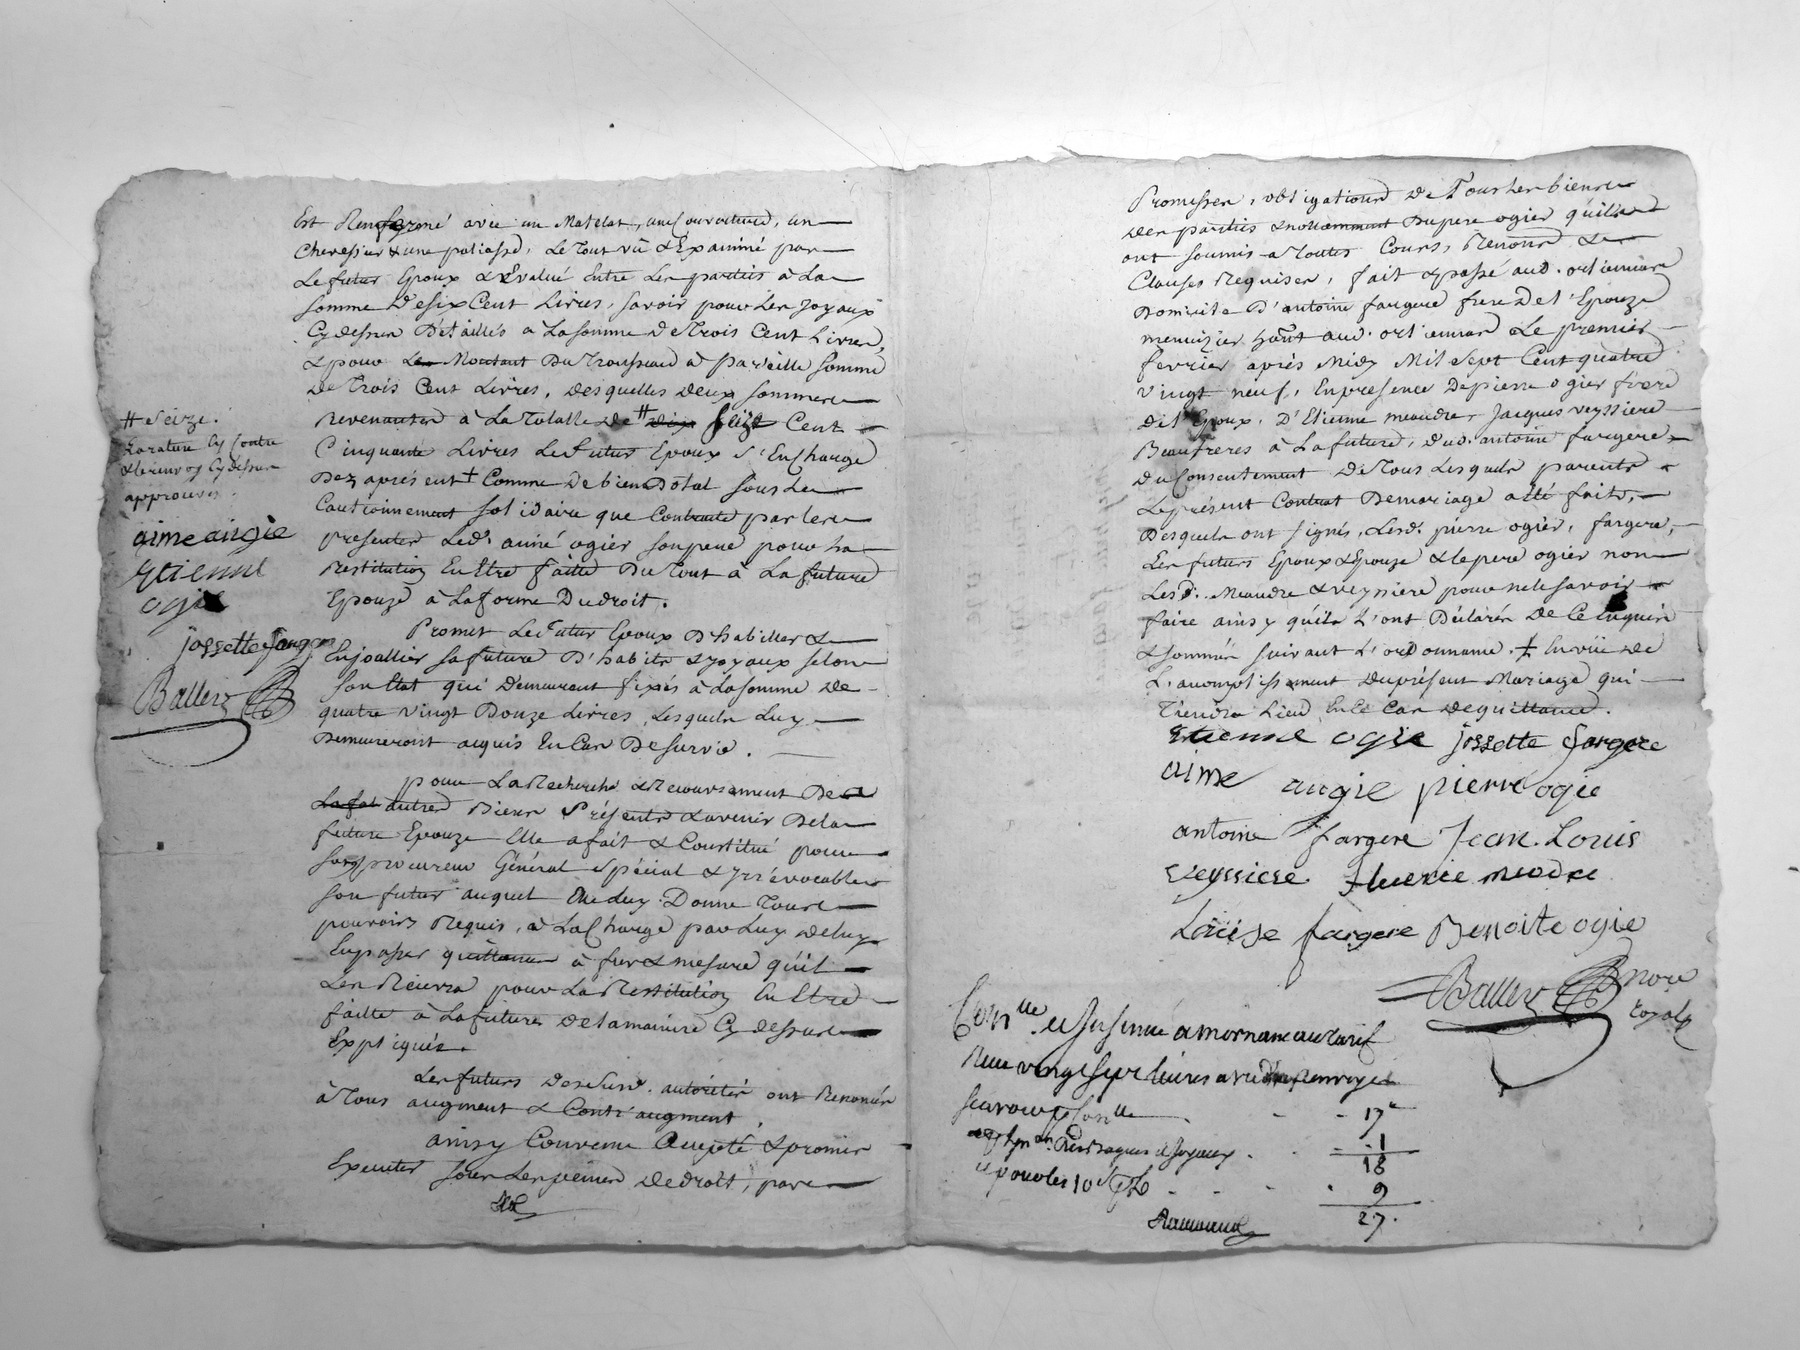 Est Renfermé avec un Matelat, une Couverture, un
Chevessier & une paliasse, Le Tout vû & Examiné par
Le futur Epoux & Evalué Entre Les parties à La
somme De six Cent Livres, savoir pour Les Joyaux
Cy dessus Détaillés a La somme De Trois Cent Livres,
& pour Le Montant Du Trousseau à pareille somme
De Trois Cent Livres, Desquelles deux sommes
Revenantes à La Totalle de # dix seize Cent
Cinquante Livres Le futur Epoux S'En Charge
Dez aprésent + Comme De bien Dotal sous Le
Cautionnement solidaire que Contracte par les
presentes Led. aimé ogier son pere pour La
Restitution En Etre faitte Du Tout à La future
Epouze à La forme Du droit.
Promet Le futur Epoux D'habiller &
Enjoallier sa future D'habits & Joyaux selon
son Etat qui Demeurent fixés à La somme De
quatre vingt Douze Livres, Lesquels Luy
Demeureront acquis En Cas De survie.
pour La Recherche & Recouvrement De
La fat autres Biens Présents & avenir De la
future Epouze Elle a fait & Constitué pour
son procureur Général Spécial & Irrévocable
son futur auquel Elle luy Donne Tous
pouvoirs Requis, à La Charge par Luy de luy
En passer quittance à fur & mesure qu'il
Les Recevra pour La Restitution En Etre
faitte à La future de la maniere Cy dessus
Expliquée.
Les futurs autorités ont Renoncés
à Tous augment & Contr'augment.
ainsy Convenu Accepté & promis
Executer sous Les peines De droit, par
# Seize.
La rature Cy Contre
& le renvoy Cy dessus
approuvés.
aime augie
Etienne
ogie
jossette fargere
Ballery
Promesses, obligations De Tous Les biens
des parties & nottamment Du pere ogier qu'ils
ont soumis a Toutes Cours, Renond &
Clauses Requises, fait & passé aud. orliemard
Domicile D'antoine fargere frere De l'Epouze
menuizier hant aud. orliemard Le premier
fevrier aprés Midy Mil sept Cent quatre
vingt neuf, En presence De pierre ogier frere
de l'Epoux, D'Etienne meaudre, Jacques veyssiere
Beaufreres à La future, dud. antoine fargere
du Consentement De Tous Lesquels parents
Le présent Contrat De mariage a été fait,
Desquels ont signés, Lesd. pierre ogier, fargere,
Les futurs Epoux & Epouze & le pere ogier non
Lesd. Meaudre & veyssiere pour ne le savoir
faire ainsy qu'ils L'ont Déclarés De Ce Enquis
& sommés suivant L'ordonnance. + En vüe de
L'accomplissement du présent Mariage qui
Tiendra Lieu En Ce Cas de quittance.
Etienne ogie jossette fargere
aime augie pierre ogie
antoine fargere Jean. Louis
veyssiere
Loüise fargere Benoite ogie
Ballery Nore
Royal
Con.lle et Insinué a mornant au tarif
Reçu vingt sept livres
scavoir p. Con.lle - - 17
p. In.on Des Bagues et Joyaux - 1
18
et pour les 10 s. p. L - - - 9
27.